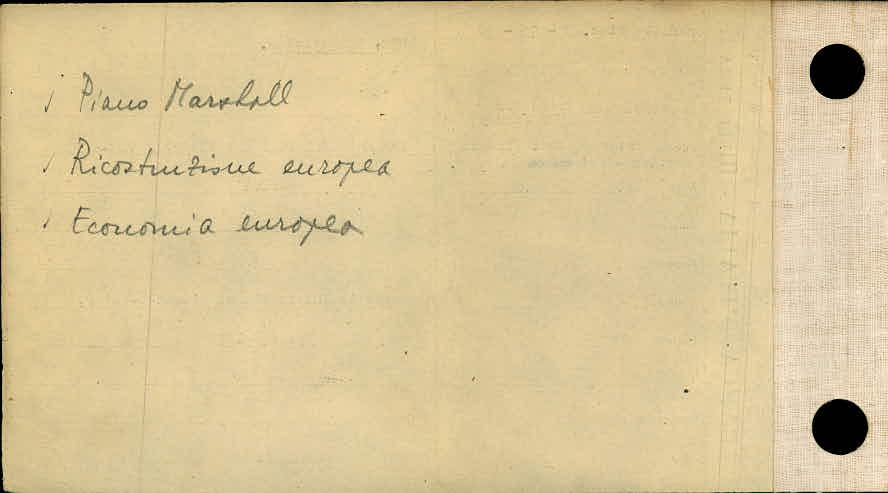 √ Piano Marshall
√ Ricostruzione europea
√ Economia europea